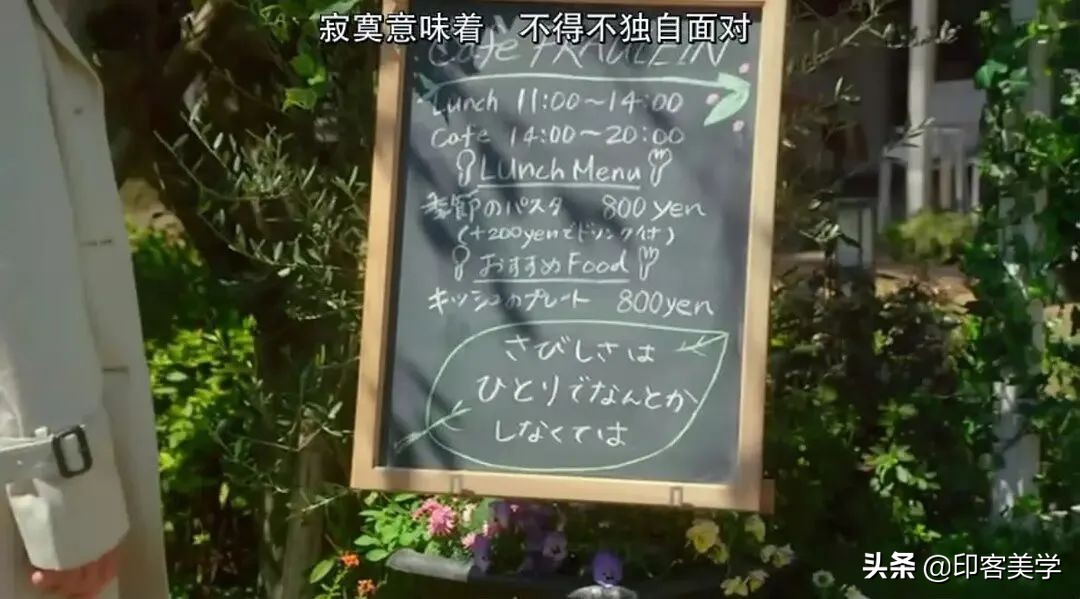 寂寞意味着 不得不独自面对
Cafe FRAULEIN
Lunch 11:00〜14:00
Cafe 14:00〜20:00
Lunch Menu
季節のパスタ 800yen
(+200yenでドリンク付)
おすすめFood
キッシュのプレート 800yen
さびしさは
ひとりでなんとか
しなくては
头条 @印客美学